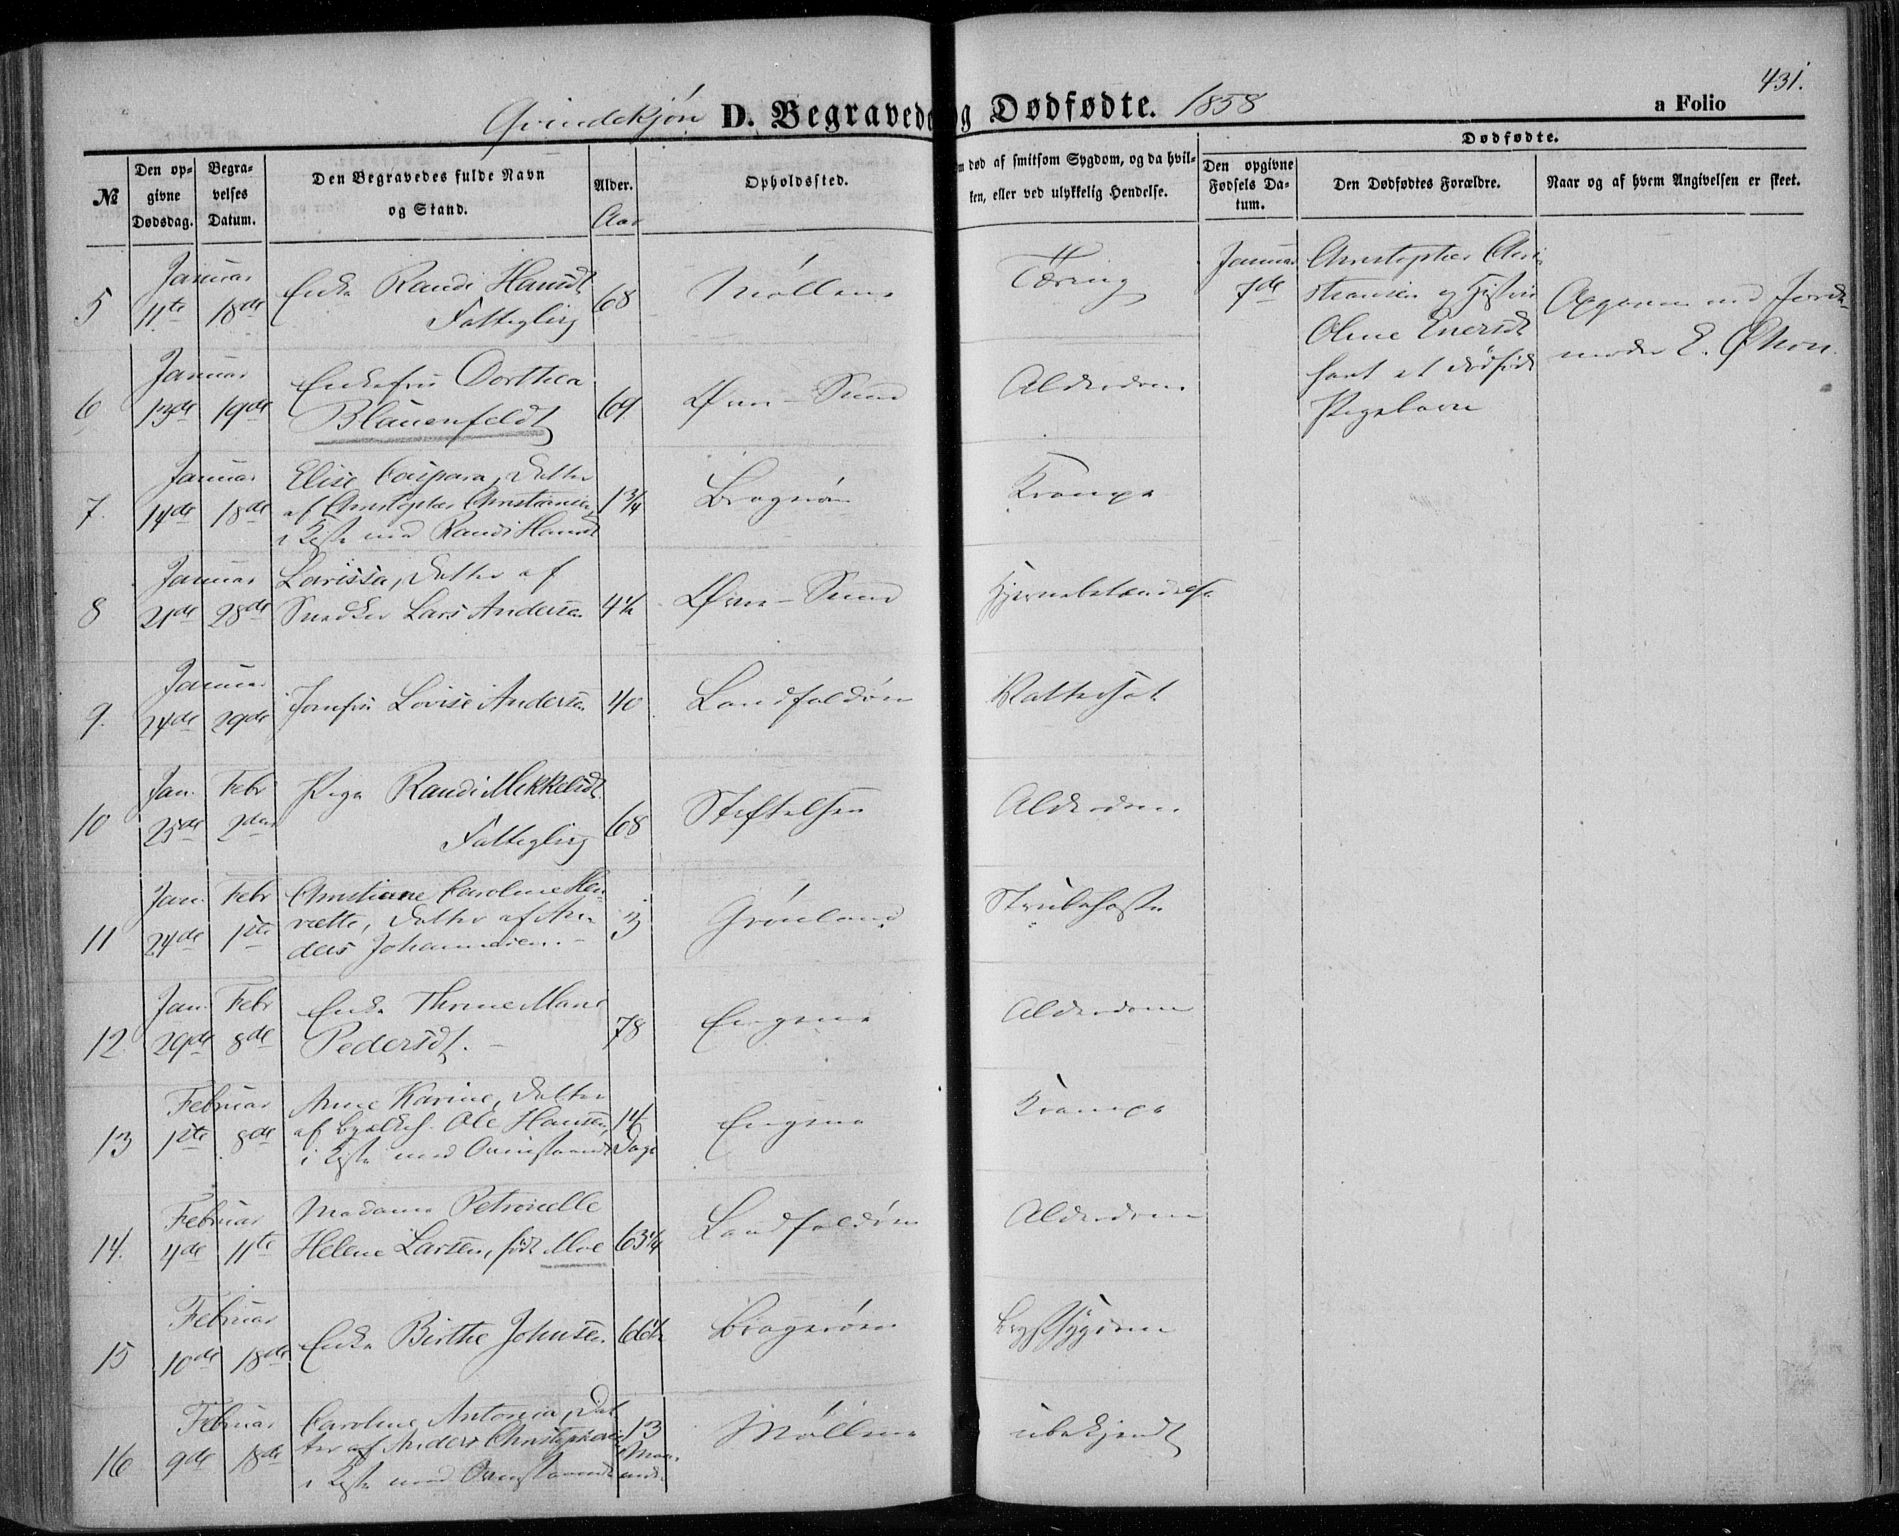 431.
Qvindekjøn D. Begravede og Dødfødte. 1858 a Folio
Dødfødte.
№
Den opgivne Dødsdag.
Begravelses Datum.
Den Begravedes fulde Navn og Stand.
Alder.
Aar
Opholdssted.
død af smitsom Sygdom, og da hvilken, eller ved ulykkelig Hendelse.
Den opgivne Fødsels Datum.
Den Dødfødtes Forældre.
Naar og af hvem Angivelsen er skeet.
5 Januar 11te 18de Enke Randi Hansdt Fattiglig 68 Møllen Tæring
Januar 7de Christopher Christiansen og Hustru Oline Evensdt havt et dødfødt Pigebarn
Opgaven ved Jordemoder E.
6 Januar 13de 19de Enkefru Dorthea Blauenfeldt 69 Øvre-Sund Alderdom
7. Januar 14de 18de Elise Caspara, Datter af Christopher Christiansen, i Kiste med Randi Hansdt 1 3/4 Bragerøen Krampe
8 Januar 21de 28de Lavissa, Datter af Snedker Lars Andersen 4 1/2 Øvre-Sund Hjernebetændelse
9. Januar 24de 29de Jomfru Lovise Andersen 40 Landfaldøen Vattersot
10 Jan. 25de Febr 2den Pige Randi Mikkelsdt. Fattiglig 68 Stiftelsen Alderdom
11 Jan. 24de Febr 1ste Christiane Caroline Henriette, Datter af Anders Johannesen. 3 Grønland Strubehoste
12 Jan. 29de Febr 8de Enke Thorine Marie Pedersdt. 78 Engene Alderdom
13 Februar 1ste 8de Anne Karine, Datter af Ole Hansen, i Kiste med Ovenstaaende 14 Dage Engene Krampe
14. Februar 4de 11te Madame Petronelle Helene Larsen, født Moe 63 1/4 Landfaldøen Alderdom
15 Februar 10de 18de Enke Birthe Johnsen. 66 1/2 Bragerøen Brystsygdom
16 Februar 9de 18de Caroline Antonia, Datter af Anders Christophersen i Kiste med Ovenstaaende 13 Maaneder Møllen ubekjendt